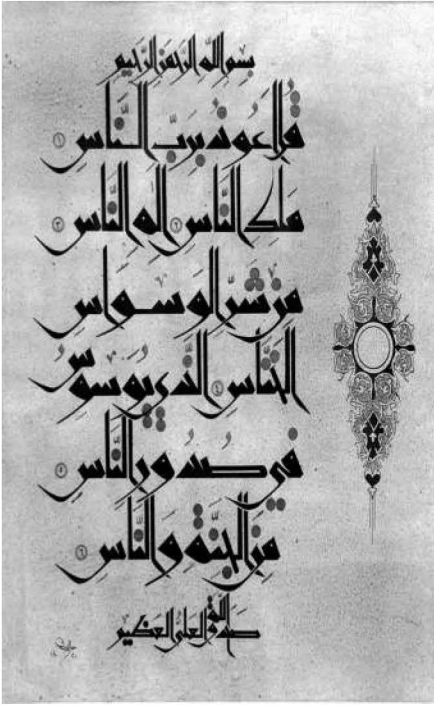 بسم الله الرحمن الرحيم
قل أعوذ برب الناس ١
ملك الناس ٢ إله الناس ٣
من شر الوسواس
الخناس ٤ الذي يوسوس
في صدور الناس ٥
من الجنة والناس ٦
صدق الله العلي العظيم